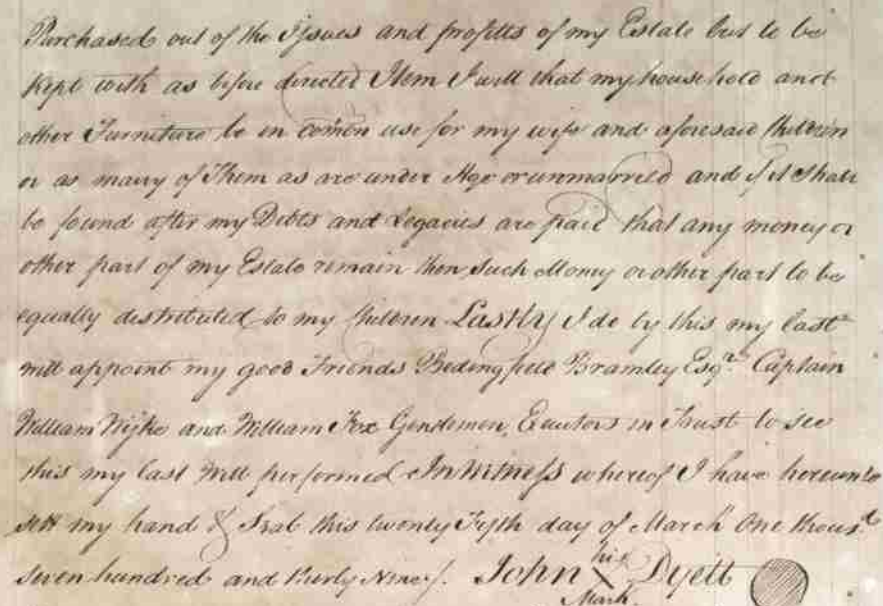 Purchased out of the Issues and profitts of my Estate but to be
Kept with as before directed Item I will that my household and
other Furniture be in comōn use for my wife and aforesaid Children
or as many of Them as are under Age or unmarried and if it Shall
be found after my Debts and Legacies are paid that any money or
other part of my Estate remain then Such Money or other part to be
equally distributed to my Children Lastly I do by this my last
will appoint my good Friends Bedingfield Bramley Esqr. Captain
William Wyke and William Fox Gendemen, Exutors in Trust to see
this my last Will performed In Witness whereof I have hereunto
sett my hand & Seal this twenty Fifth day of March One thousd.
seven hundred and thirty Nine/. John his X Dyett
Mark.